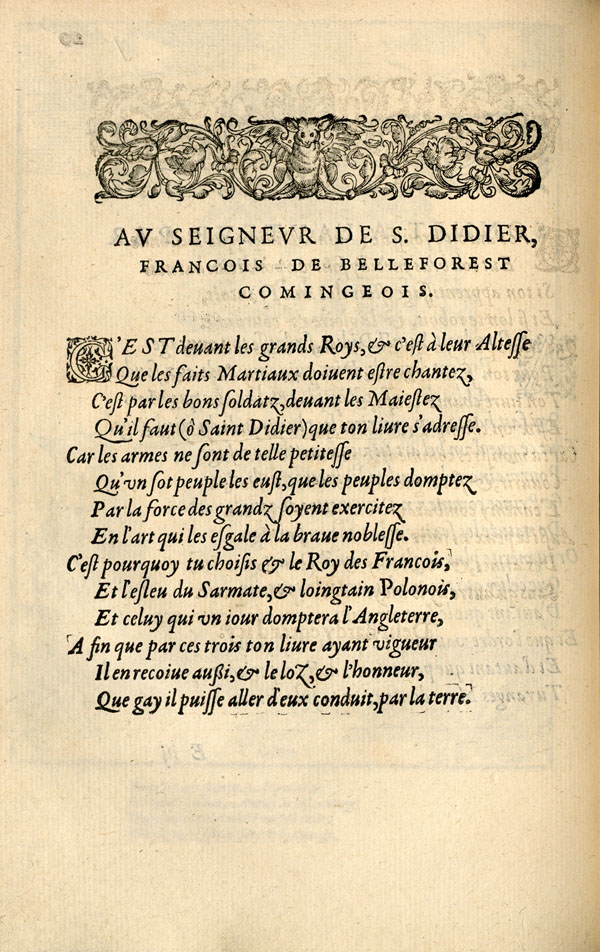 AV SEIGNEVR DE S. DIDIER,
FRANCOIS DE BELLEFOREST
COMINGEOIS.
C'EST deuant les grands Roys, & c'est à leur Altesse
Que les faits Martiaux doiuent estre chantez,
C'est par les bons soldatz, deuant les Maiestez
Qu'il faut (ô Saint Didier) que ton liure s'adresse.
Car les armes ne sont de telle petitesse
Qu'vn sot peuple les eust, que les peuples domptez
Par la force des grandz soyent exercitez
En l'art qui les esgale à la braue noblesse.
C'est pourquoy tu choisis & le Roy des Francois,
Et l'esleu du Sarmate, & loingtain Polonois,
Et celuy qui vn iour domptera l'Angleterre,
A fin que par ces trois ton liure ayant vigueur
Il en recoiue außi, & le loz, & l'honneur,
Que gay il puisse aller d'eux conduit, par la terre.